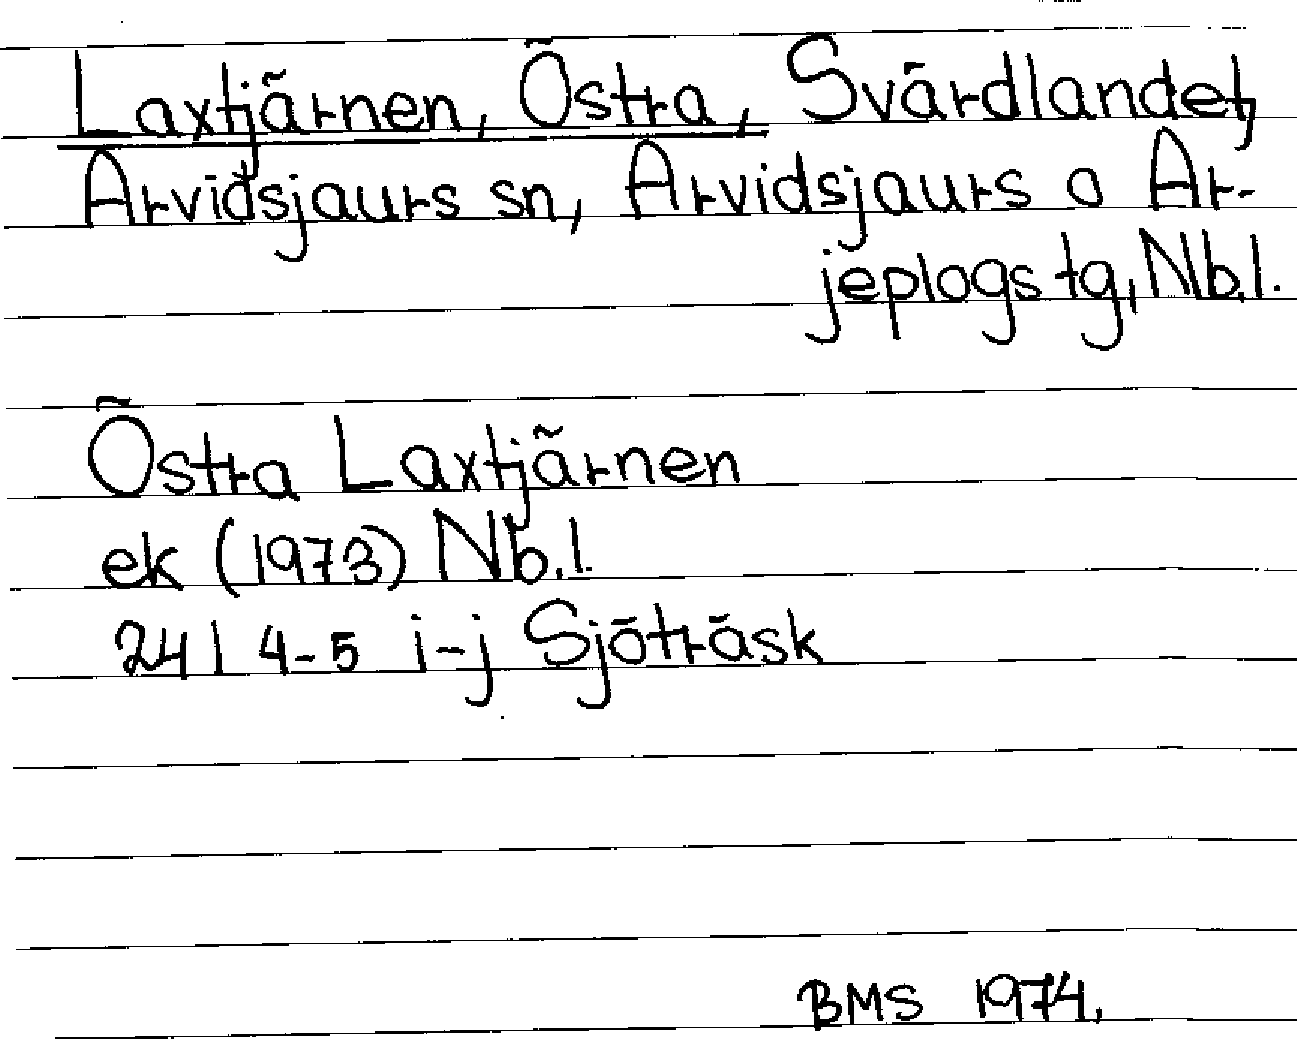 Laxtjärnen, Östra, Svärdlandet,
Arvidsjaurs sn, Arvidsjaurs o Ar-
jeplogs tg, Nb.l.
Östra Laxtjärnen
ek (1973) Nb.l.
24 I 4-5 i-j Sjöträsk
BMS 1974.